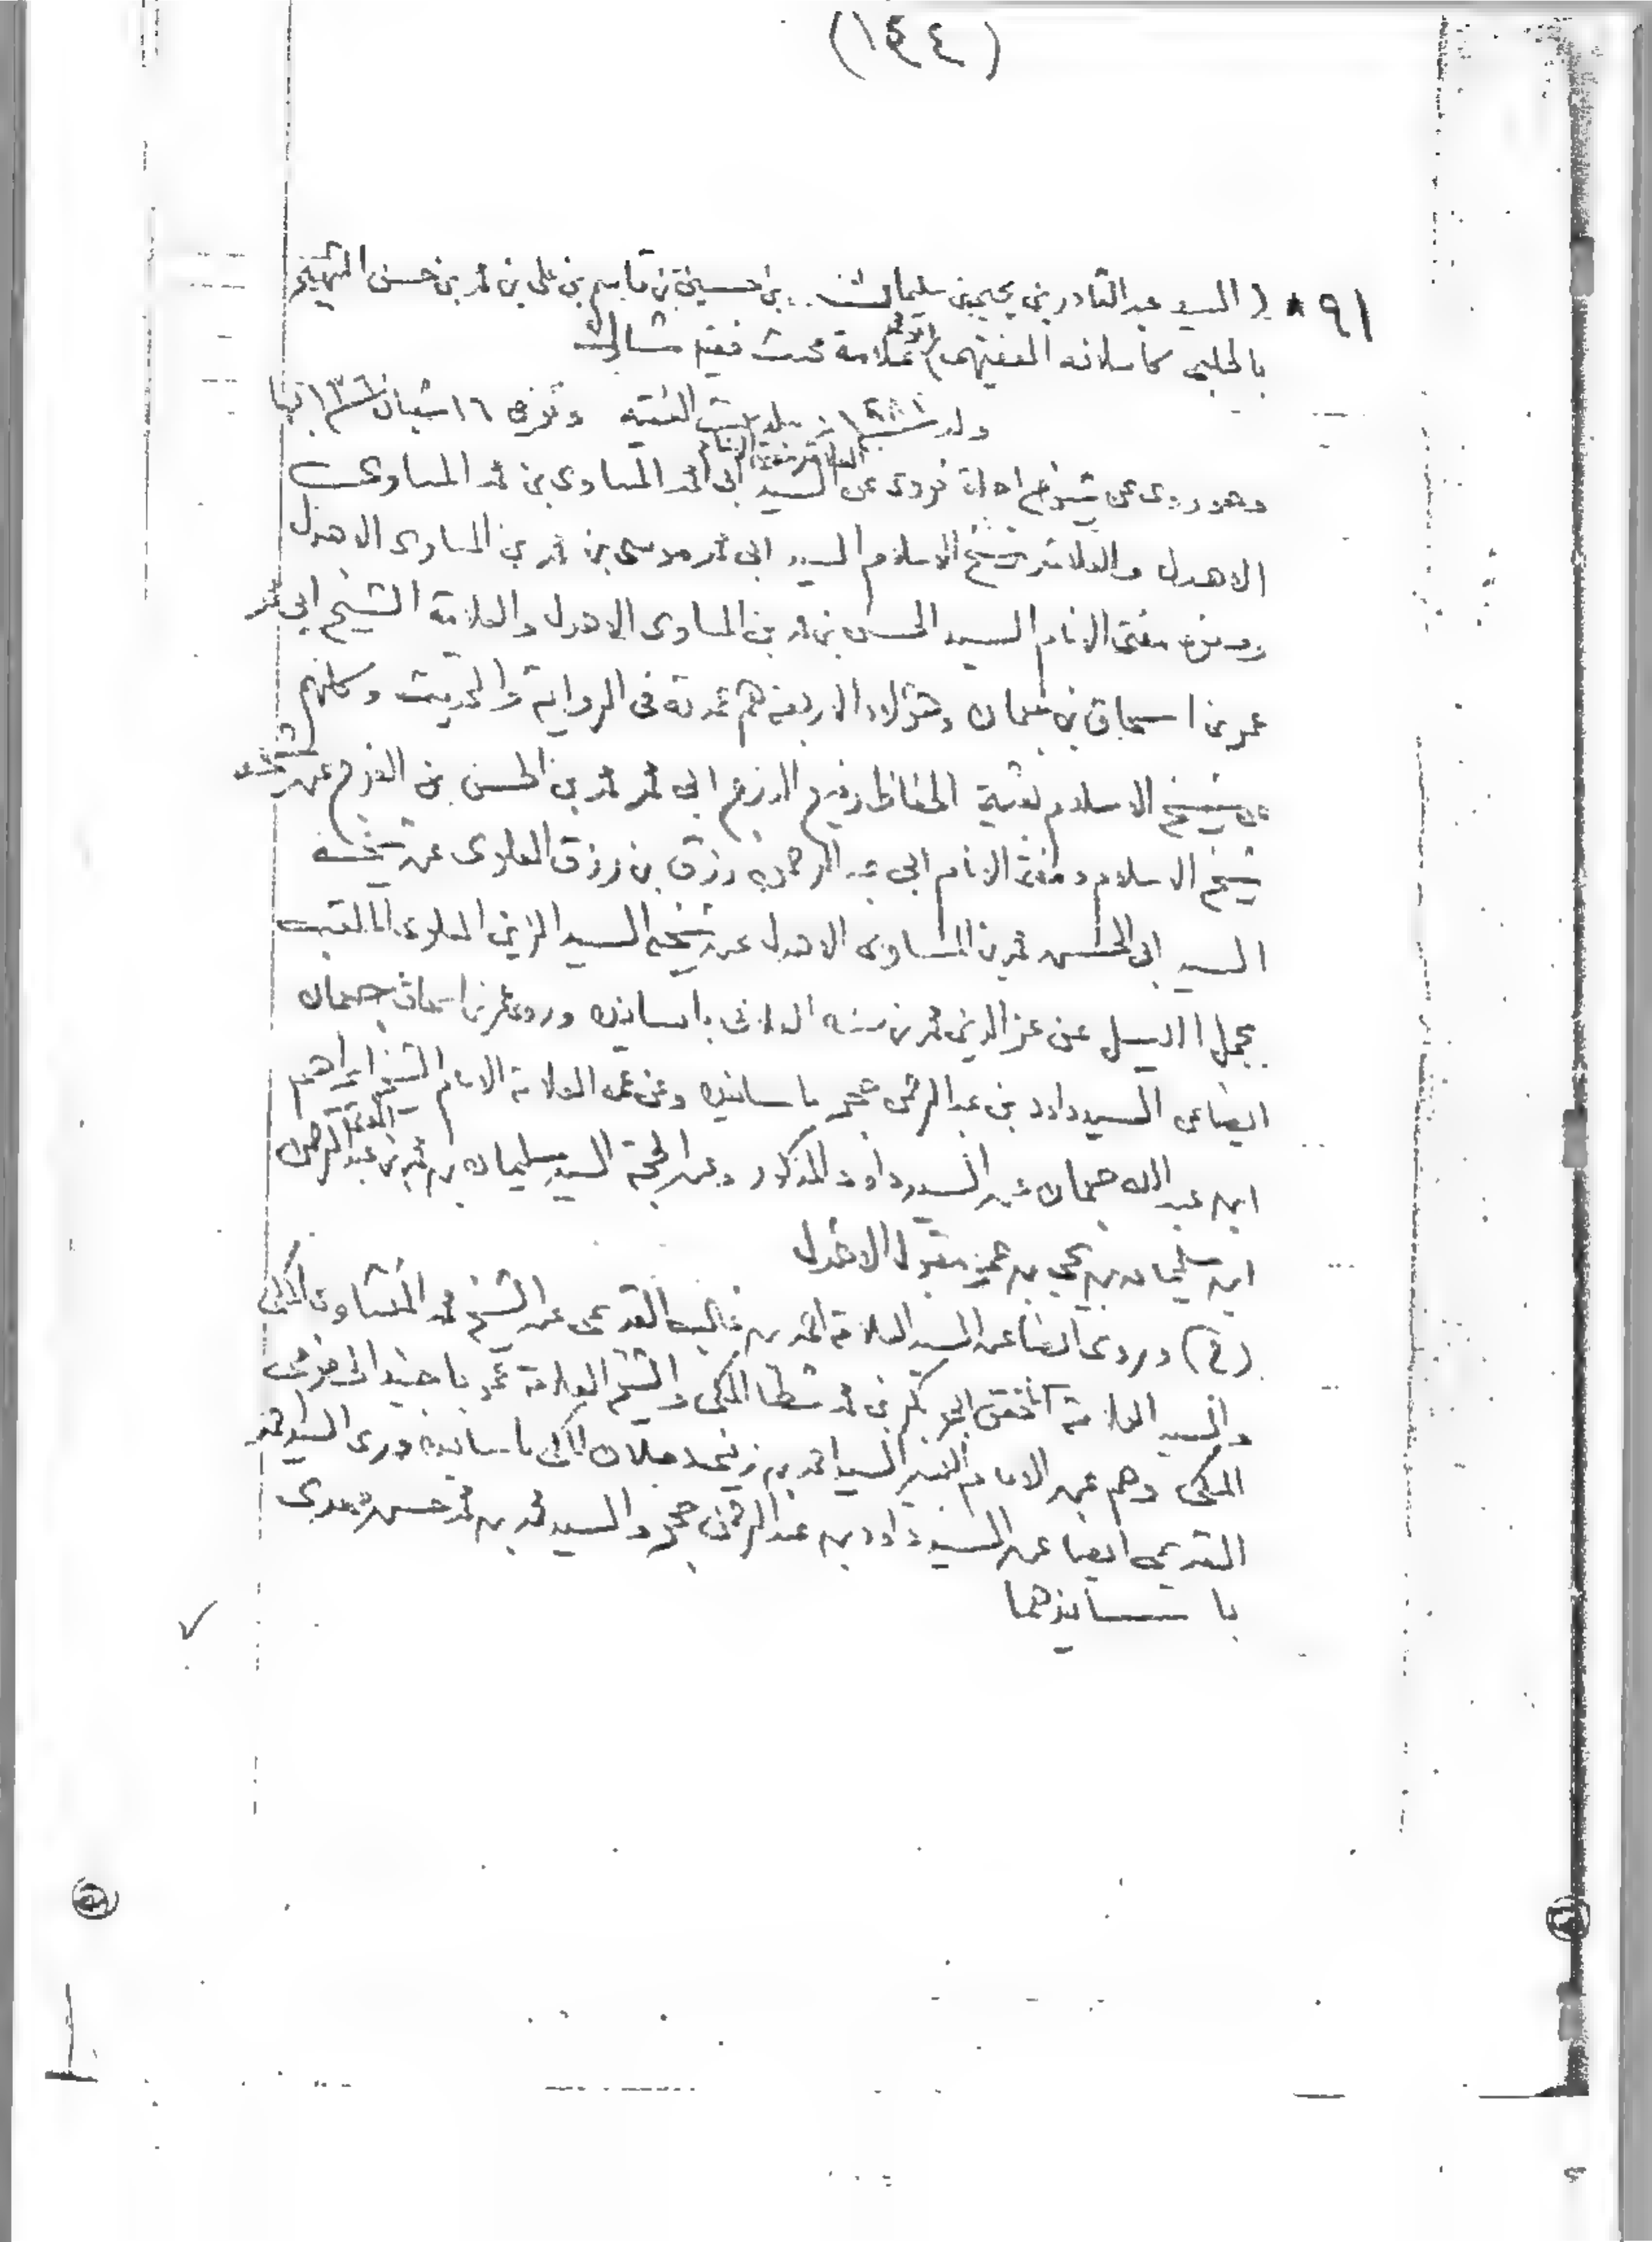 (١٤٤)
٩١ * ( السيد عبدالقادر بن يحيى بن سليمان بن حسين بن قاسم بن علي بن محمد بن حسن الشهير
بالخليجي كأسلافه ) علامة محدث فقيه مشارك
ولد بيت الفقيه وتوفى ١٦ شعبان بها
وهو روى عن شيوخ اجلة فروى عن السيد ابى احمد المساوى بن محمد المساوى
الاهدل والعلامة شيخ الاسلام السيد ابى محمد موسى بن محمد بن المساوى الاهدل
مفتى الانام السيد الحسن بن محمد بن المساوى الاهدل والعلامة الشيخ ابى
عمر بن اسحاق بن جعمان وهؤلاء الاربعة هم عمدته فى الرواية والحديث وكلهم
عن شيخ الاسلام بقية الحفاظ ابى محمد محمد بن الحسن بن الفرج عن
شيخ الاسلام ومفتى الانام ابى عبد الرحمن رزق بن رزق العلوى عن شيخه
السيد ابى الحسن محمد بن المساوى الاهدل عن شيخه السيد الزين العلوى الملقب
بجمل الليل عن عز الدين محمد بن سنه الفلانى باسانيده وروى عمر بن اسحاق جعمان
ايضا عن السيد داود بن عبد الرحمن حجر باسانيده وعن عمه العلامة الامام الشيخ ابراهيم
ابن عبد الله جعمان عن السيد داود المذكور وعن الحجة السيد سليمان بن محمد بن عبد الرحمن
ابن سليمان بن يحيى بن عمر مقبول الاهدل
(ح) وروى ايضا عن السيد العلامة احمد بن غالب القديمى عن الشيخ محمد المنشاوى المكى
والسيد العلامة المحقق ابى بكر بن محمد شطا المكى والشيخ العلامة عمر باجنيد الحضرمى
المكى وهم عن الامام الشهير السيد احمد بن زينى دحلان المكى باسانيده وروى السيد احمد
القديمى ايضا عن السيد داود بن عبد الرحمن حجر والسيد محمد بن محمد حسن
باسانيدهما